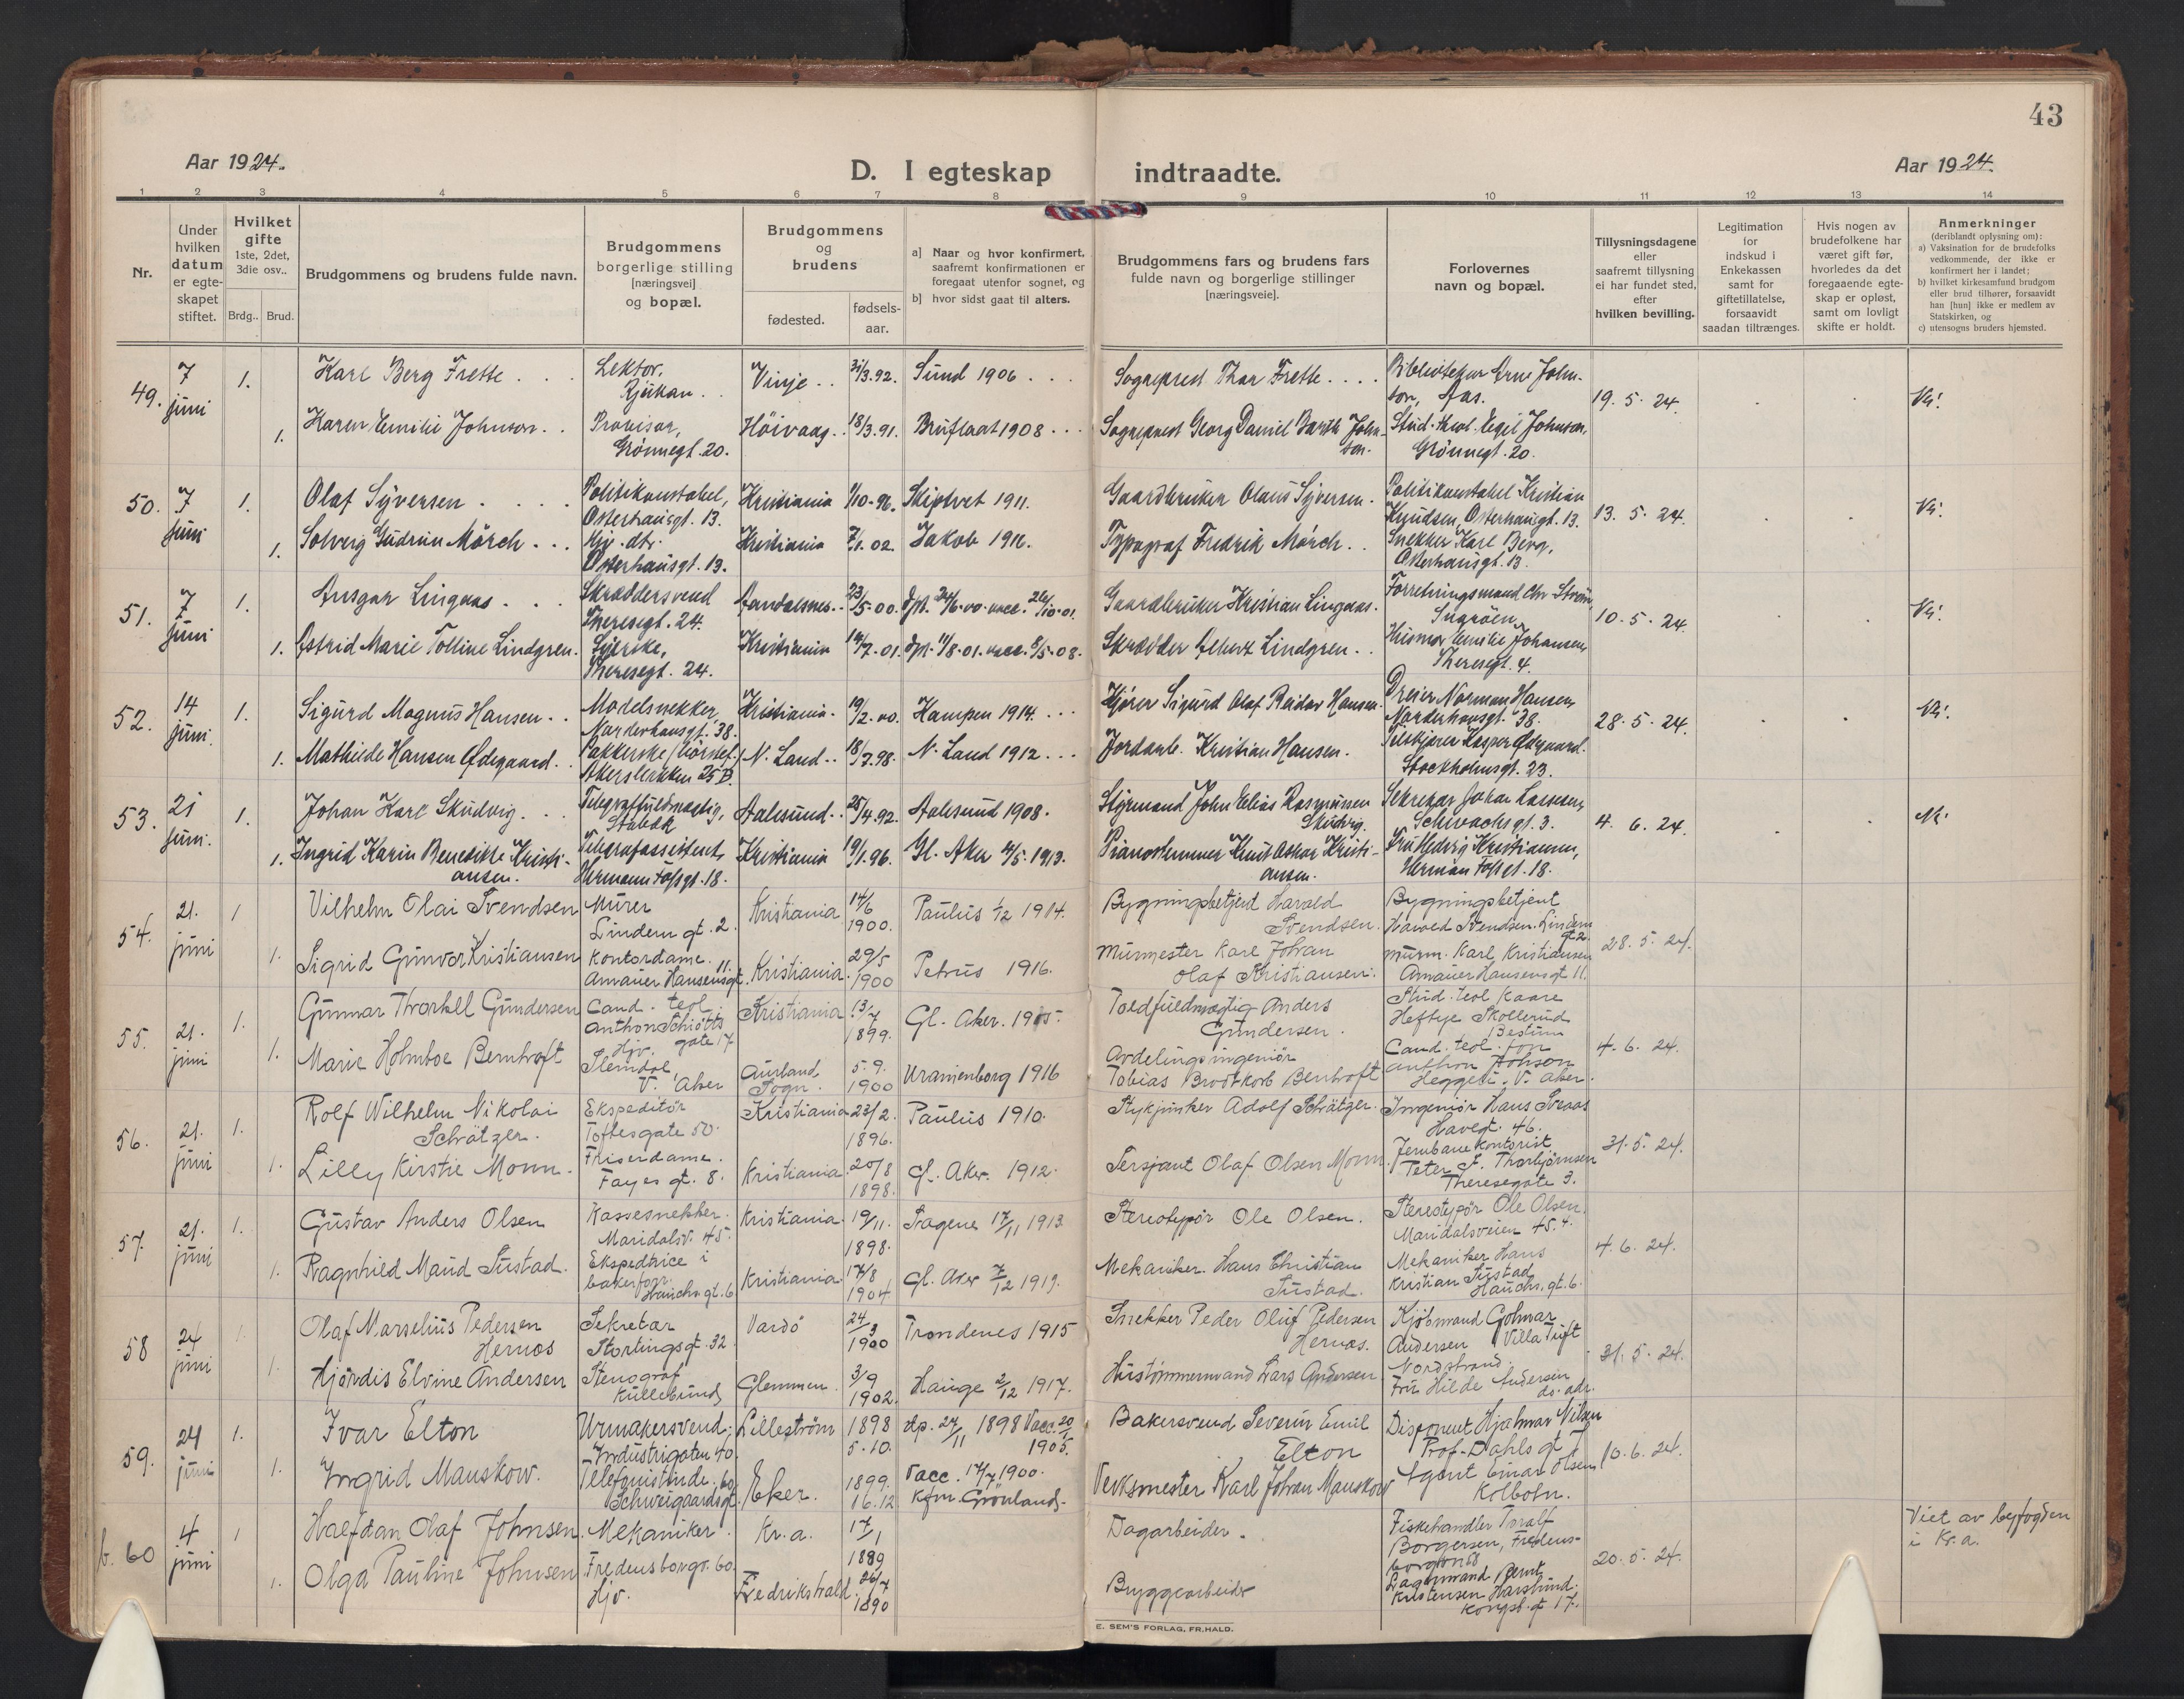 43
Aar 1924.
D. I egteskap indtraadte.
Aar 1924.
1 2 3 4 5 6 7 8 9 10 11 12 13 14
Nr.
Under hvilken datum er egteskapet stiftet.
Hvilket gifte 1ste, 2det, 3die osv..
Brdg.. Brud.
Brudgommens og brudens fulde navn.
Brudgommens borgerlige stilling [næringsvei] og bopæl.
Brudgommens og brudens
fødested.
fødsels-aar.
a] Naar og hvor konfirmert, saafremt konfirmationen er foregaat utenfor sognet, og
b] hvor sidst gaat til alters.
Brudgommens fars og brudens fars fulde navn og borgerlige stillinger [næringsveie].
Forlovernes navn og bopæl.
Tillysningsdagene eller saafremt tillysning ei har fundet sted, efter hvilken bevilling.
Legitimation for indskud i Enkekassen samt for giftetillatelse, forsaavidt saadan tiltrænges.
Hvis nogen av brudefolkene har været gift før, hvorledes da det foregaaende egteskap er opløst, samt om lovligt skifte er holdt.
Anmerkninger (deriblandt oplysning om):
a) Vaksination for de brudefolks vedkommende, der ikke er konfirmert her i landet;
b) hvilket kirkesamfund brudgom eller brud tilhører, forsaavidt han [hun] ikke er medlem av Statskirken, og
c) utensogns bruders hjemsted.
49. 7 juni 1. Karl Berg Frette Lektor, Rjukan Vinje 31/3.92. Sund 1906 Sogneprest Thor Frette Bibliotekar Arne Johnson, Aas. 19. 5. 24.
1. Karen Emilie Johnson Provisor, Grønnegt. 20. Höivaag 18/3.91. Bruflaat 1908 Sogneprest Georg Daniel Barth Johnson. Stud. theol. Egil Johnson, Grönnegt. 20.
50. 7 juni 1. Olaf Syversen Politikonstabel, Osterhausgt. 13. Kristiania 1/10-96. Skiptvet 1911. Gaardbruker Olaus Syversen Politikonstabel Kristian Knudsen, Osterhausgt. 13. 13. 5. 24.
1. Solveig Gudrun Mörch Hjv. dtr. Osterhausgt. 13. Kristiania 7/1. 02. Jakob 1916. Typograf Fredrik Mörch Snekker Karl Berg, Osterhausgt. 13.
51. 7 juni 1. Ansgar Lingaas Skræddersvend Theresegt. 24. Aandalsnes 23/5-00. dpt. 24/6-00 vacc. 26/10-01. Gaardbruker Kristian Lingaas. Forretningsmand Chr. Ström, 10. 5. 24.
1. Astrid Marie Tolline Lindgren. Syerske, Theresegt. 24. Kristiania 14/7-01. dpt. 11/8.01. vacc. 8/5-08. Skrædder Albert Lindgren Husmor Emilie Johansen, Theresegt. 4.
52. 14 juni. 1. Sigurd Magnus Hansen Modelsnekker, Norderhovsgt. 38. Kristiania 19/2.00. Kampen 1914. Kjører Sigurd Olaf Reidar Hansen. Dreier Norman Hansen, Norderhovsgt. 38. 28. 5. 24.
1. Mathilde Hansen Ødegaard Akersbakken 25 B. N. Land 18/3.98. N. Land 1912 Jordarb. Kristian Hansen. Kasper Ødegaard. Stockholmsgt. 23.
53. 21 juni. 1. Johan Karl Skudvig Telegraffuldmægtig, Stabæk Aalesund 25/4.92. Aalesund 1908. Styrmand John Elias Rasmussen Skudvig. Sekretær Johan Lassesen, Schwachsgt. 3. 4. 6. 24.
1. Ingrid Karin Benedikte Kristiansen. Telegrafassistent, Hermann Fossgt. 18. Kristiania 19/1.96. Gl. Aker 4/5.1913. Pianostemmer Knut Oskar Kristiansen. Fru Hedvig Kristiansen, Herman Fossgt. 18.
54. 21. juni 1 Vilhelm Olai Svendsen Murer Lindern gt. 2. Kristiania 14/6 1900. Paulus 1/12 1914. Bygningsbetjent Harald Svendsen. Bygningsbetjent Harald Svendsen. Lindern gt 2. 28. 5. 24.
1. Sigrid Gunvor Kristiansen Kontordame. Amauer Hansensgt. 11. Kristiania. 29/5 1900 Petrus 1916. Murmester Karl Johan Olaf Kristiansen. murm. Karl Kristiansen Amauer Hansensgt 11.
55. 21. juni 1. Gunnar Thorkell Gundersen Cand. teol. Anthon Schiøtts gate 17 Kristiania 13/7 1899. Gl. Aker. 1915. Toldfuldmægtig Anders Gundersen. Stud. teol Kaare Heftye Skollerud Bestum 4. 6. 24.
1. Marie Holmboe Bentroft Hjv. Slemdal, V. Aker Aurland, Sogn. 5. 9. 1900 Uranienborg 1916 Avdelingsingeniør Tobias Brodtkorb Bentroft Cand. teol. Jon Anthon Johnson Heggeli. V. Aker.
56. 21. juni 1. Rolf Wilhelm Nikolai Schrätzer. Ekspeditör Toftesgate 50. Kristiania 23/2. 1896. Paulus 1910. Stykjunker Adolf Schrätzer. Ingeniör Hans Svaas Havegt. 46. 31. 5. 24.
1. Lilly Kirstie Monn. Friserdame. Fayes gt. 8. Kristiania. 20/8 1898. Gl. Aker. 1912. Sersjant Olaf Olsen Monn. Jernbanekontorist Peter F. Thorbjörnsen Theresegate 3.
57. 21. juni 1. Gustav Anders Olsen Kassesnekker. Maridalsv. 45. Kristiania. 19/11. 1898. Sagene 17/11 1913. Stereotypör Ole Olsen. Stereotypör Ole Olsen. Maridalsveien 45. 4. 6. 24.
1. Ragnhild Maud Sustad. Ekspeditrice i bakerforr. Hauchs. gt. 6 Kristiania. 17/8 1904 Gl. Aker 7/12 1919. Mekaniker. Hans Christian Sustad. Mekaniker Hans Kristian Sustad Hauchs. gt. 6.
58 24 juni 1. Olaf Marselius Pedersen Hernæs Sekretær Stortingsgt. 32 Vardö 24/3 1900 Trondenes 1915 Snekker Peder Oluf Pedersen Hernæs. Kjöbmand Golmar Andersen Villa Tuft Nordstrand. 31. 5. 24.
1. Hjördis Elvine Andersen Stenograf Kullebund, Glemmen. 3/9 1902. Hauge 2/12 1917. Hustömmermand Lars Andersen Fru Hilde Andersen ds. adr.
59. 24 juni 1. Ivar Elton Urmakersvend. Industrigaten 40. Lilleström 1898 5.10. dp. 27/11 1898 Vacc. 20/1 1905. Bakersvend Severin Emil Elton Disponent Hjalmar Nilsen Prof. Dahls gt 7 10. 6. 24.
1. Ingrid Manskow. Telefonistinde. Schweigaardsgt. 60 Eker. 1899. 16.12 Vacc. 17/7 1900. Kfm. Grönland. Verksmester Karl Johan Manskow Agent Einar Olsen Kolbotn.
b. 60 4 juni 1 Halfdan Olaf Johnsen. Mekaniker. Fredensborgv. 60. Kr.a. 17/1 1889 Dagarbeider. Fiskehandler Toralf Borgersen, Fredensborgveien 68 20. 5. 24. Viet av byfogden i Kr.a.
1. Olga Pauline Johnsen Hjv. Fredrikshald. 26/7 1890 Bryggearbeider Lagermand Bernt Kristensen Harslund. Kongsb. gt 17.
E. SEM'S FORLAG, FR.HALD.